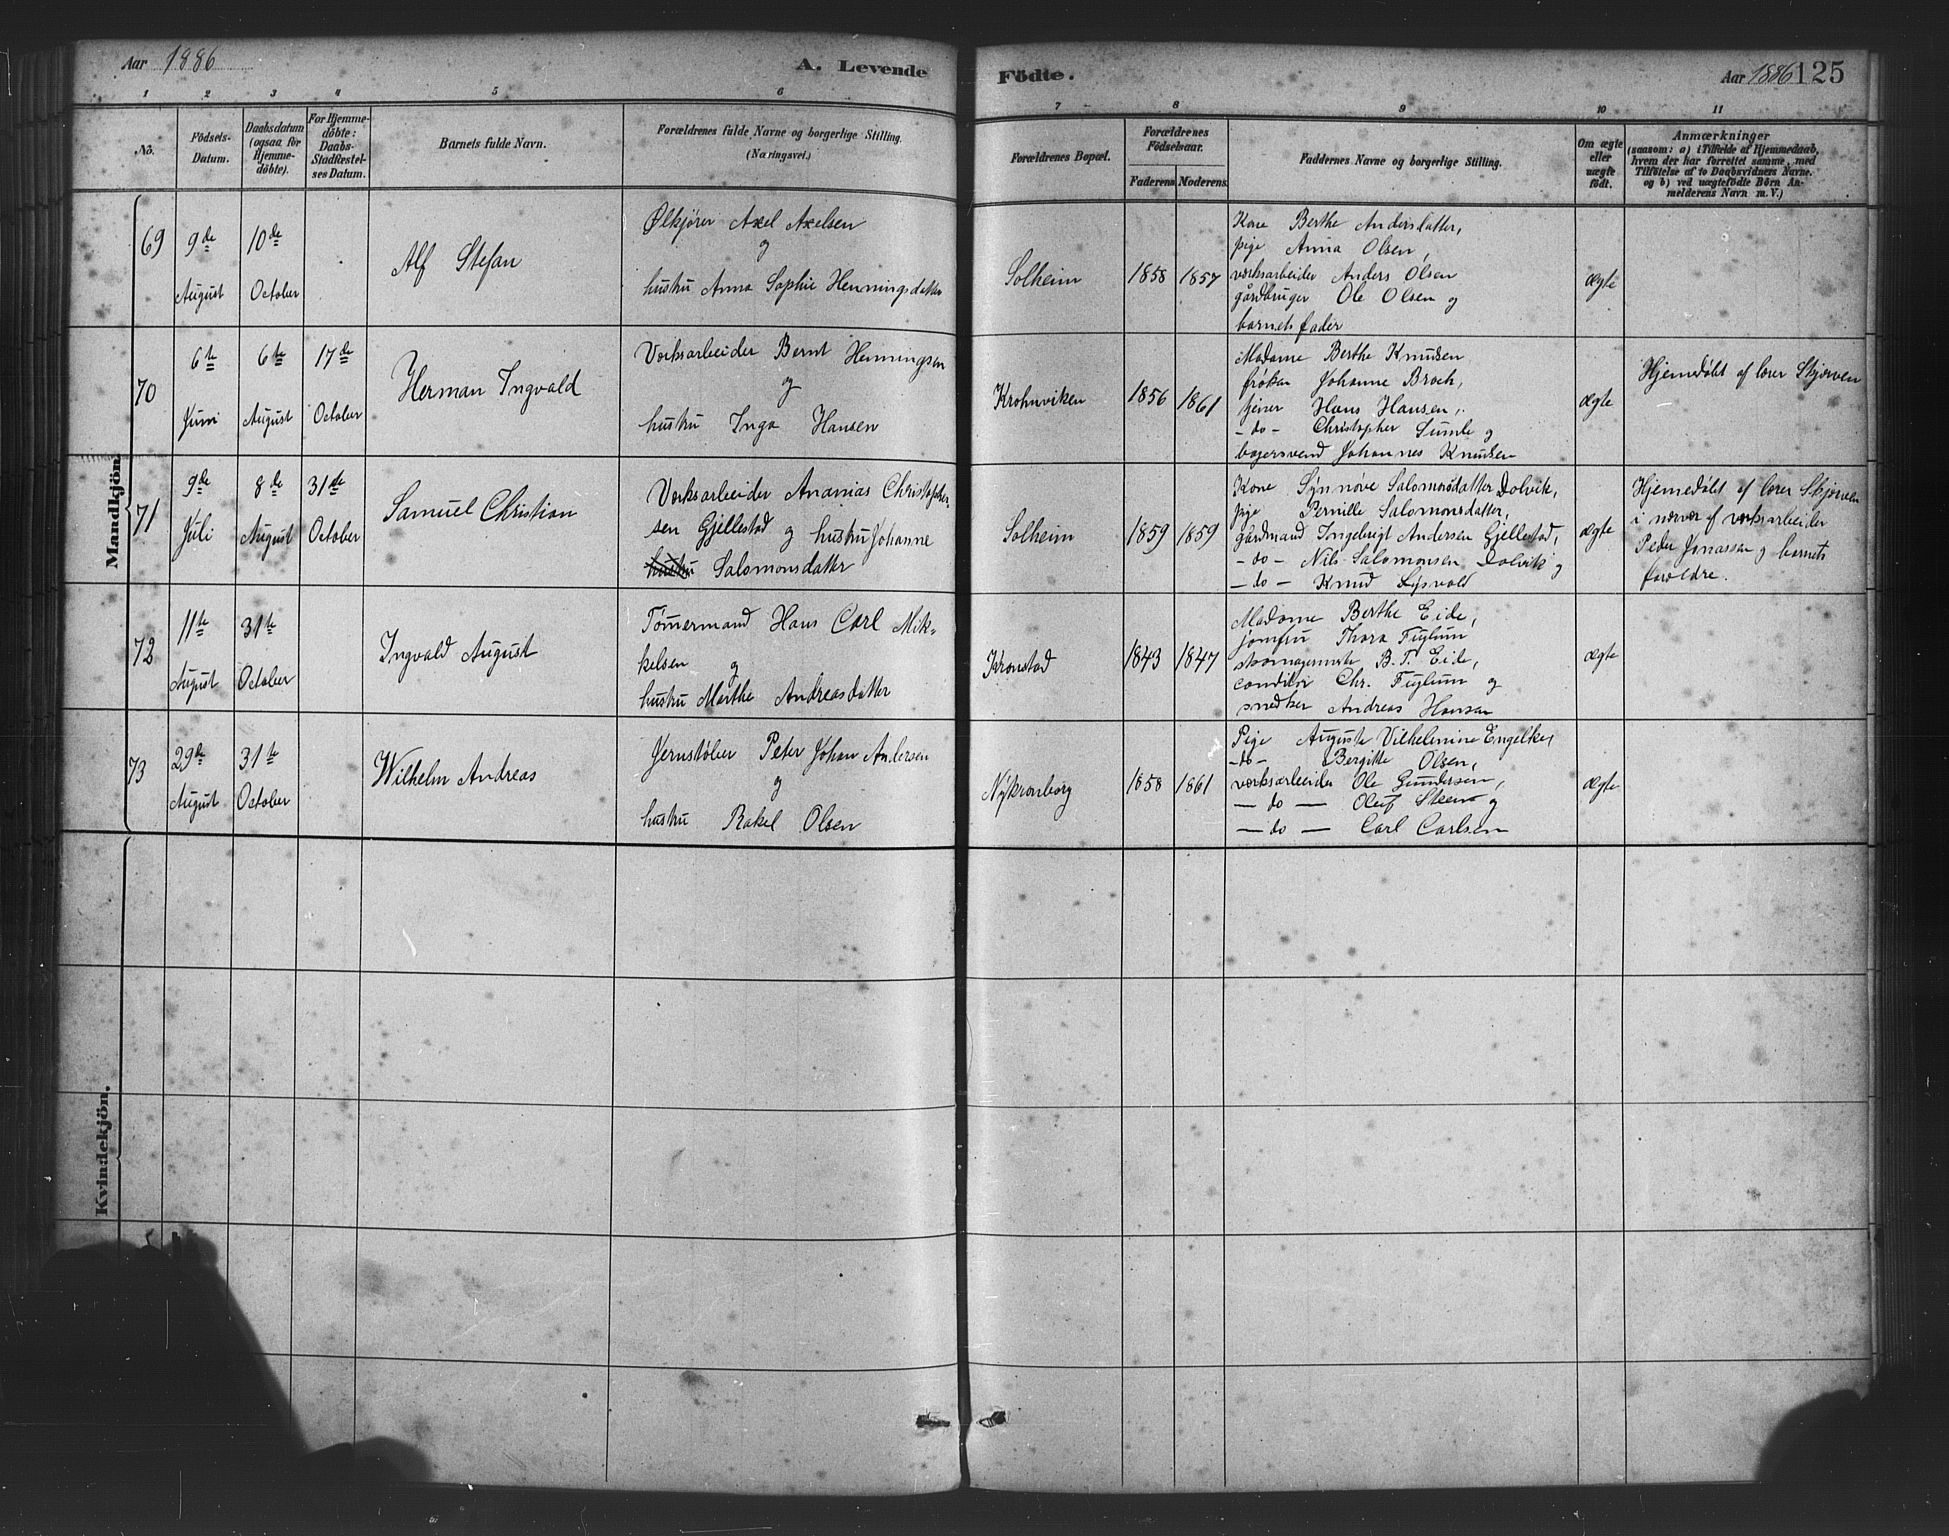 Aar 1886
A. Levende
Födte.
Aar 1886
125
1
2
3
4
5
6
7
8
9
10
11
No.
Födsels-
Datum.
Daabsdatum
(ogsaa for
Hjemme-
döbte).
For Hjemme-
döbte:
Daabs-
Stadfæstel-
ses Datum.
Barnets fulde Navn.
Forældrenes fulde Navne og borgerlige Stilling.
(Næringsvei.)
Forældrenes Bopæl.
Forældrenes
Födselsaar.
Faderens
Moderens.
Faddernes Navne og borgerlige Stilling.
Om ægte
eller
uægte
födt.
Anmærkninger
(saasom: a) i Tilfælde af Hjemmedaab,
hvem der har forrettet samme, med
Tilföielse af to Daabsvidners Navne.
og b) ved uægtefödte Börn An-
melderens Navn m. V.)
Mandkjön.
69
9de
August
10de
October
Alf Stefan
Ølkjører Axel Axelsen
og
hustru Anna Sophie Henningsdatter
Solheim
1858
1857
Kone Berthe Andersdatter,
pige Anna Olsen,
værksarbeider Anders Olsen
gårdbruger Ole Olsen og
barnets fader
ægte
70
6te
Juni
6te
August
17de
October
Herman Ingvald
Værksarbeider Bernt Henningsen
og
hustru Inga Hansen
Krohnviken
1856
1861
Madame Berthe Knudsen
frøken Johanne Broch,
tjener Hans Hansen,
- do - Christopher Sumle og
bagersvend Johannes Knudsen
ægte
Hjemedøbt af lærer Skjerven
71
9de
Juli
8de
August
31te
October
Samuel Christian
Værksarbeider Ananias Christofer-
sen Gjellestad og hustru Johanne
hustru Salomonsdatter
Solheim
1859
1859
Kone Synnøve Salomonsdatter Dolvik,
pige Pernille Salomonsdatter,
gårdmand Ingebrigt Andersen Gjellestad,
- do - Nils Salomonsen Dolvik og
- do - Knud Lysvold
ægte
Hjemedøbt af lærer Skjerven
i nærvær af værksarbeider
Peder Jonassen og barnets
forældre.
72
11te
August
31te
October
Ingvald August
Tømermand Hans Carl Mik-
kelsen og
hustru Marthe Andreasdatter
Kronstad
1843
1847
Madame Berthe Eide,
jomfru Thora Fuglum
skomagermste B. T. Eide,
conditor Chr. Fuglum og
snedker Andreas Hansen
ægte
73
29de
August
31te
October
Wilhelm Andreas
Jernstøber Peter Johan Andersen
og
hustru Rakel Olsen
Nykronborg
1858
1861
Pige Auguste Vilhelmine Engelke,
- do - Bergitte Olsen,
værksarbeider Ole Gundersen,
- do - Oluf Steen og
- do - Carl Carlsen
ægte
Kvindekjön.